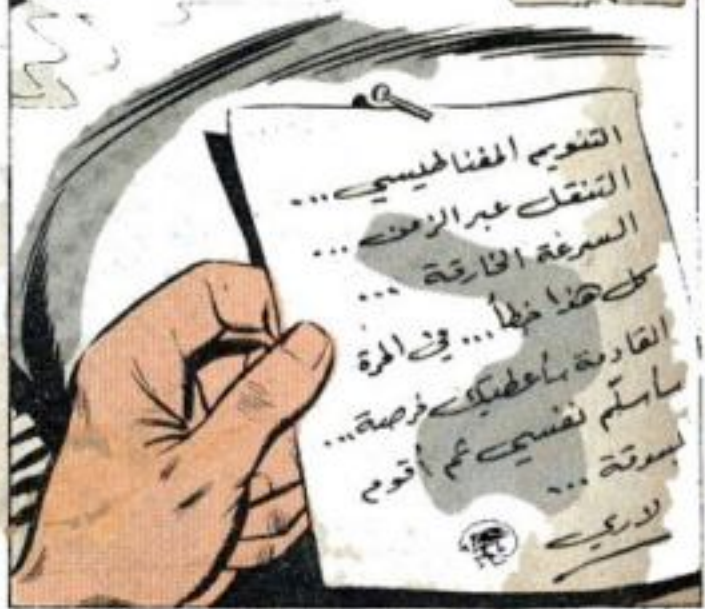 التنويم المغناطيسي ...
التنقل عبر الزمن ...
السرعة الخارقة ...
كل هذا خطأ ... في المرة
القادمة سأعطيك فرصة ...
سأسلّم نفسي ثم أقوم
بسرقة ...
لاري